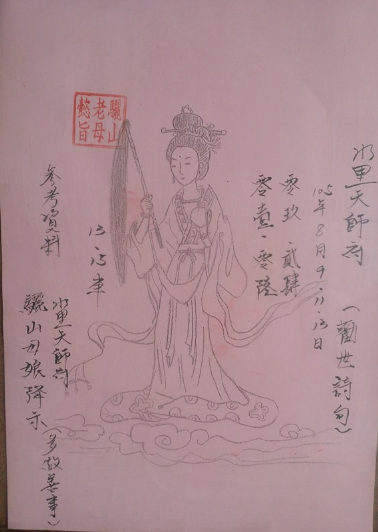 水里天師府 (勸世詩句)
105年8月9.11.13日
零玖.貳肆
零壹.零陸
驪山
老母
懿旨
13.15車
參考資料
水里天師府
驪山母娘降示 (多做善事)